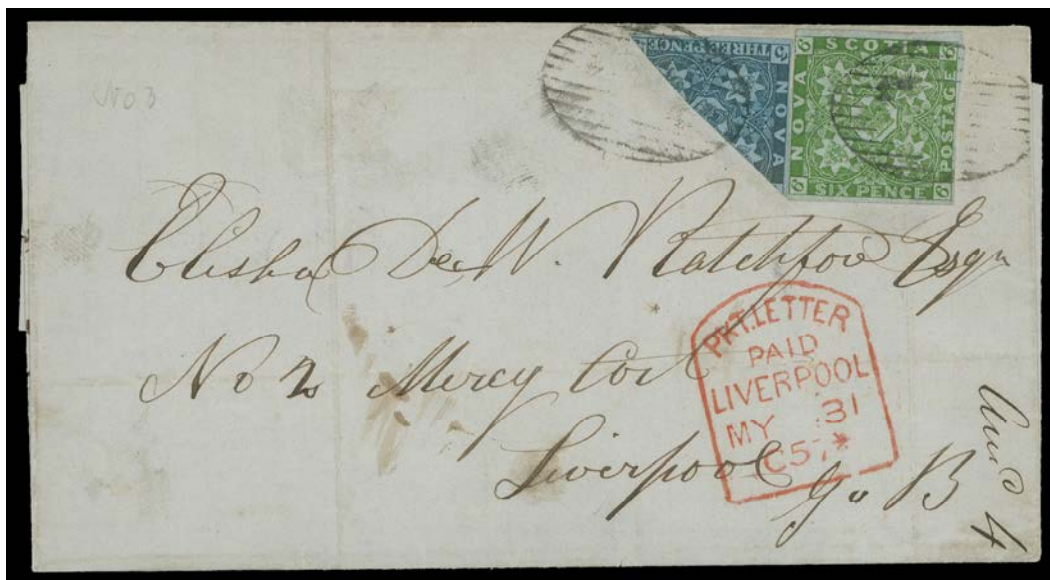 No 3
THREE PENCE
NOVA
NOVA
SCOTIA
POSTAGE
SIX PENCE
6
6
6
6
Elisha DeW. Ratchford Esqr
No 2 Mercy Cort
Liverpool G. B
PKT. LETTER
PAID
LIVERPOOL
MY 31
C57*